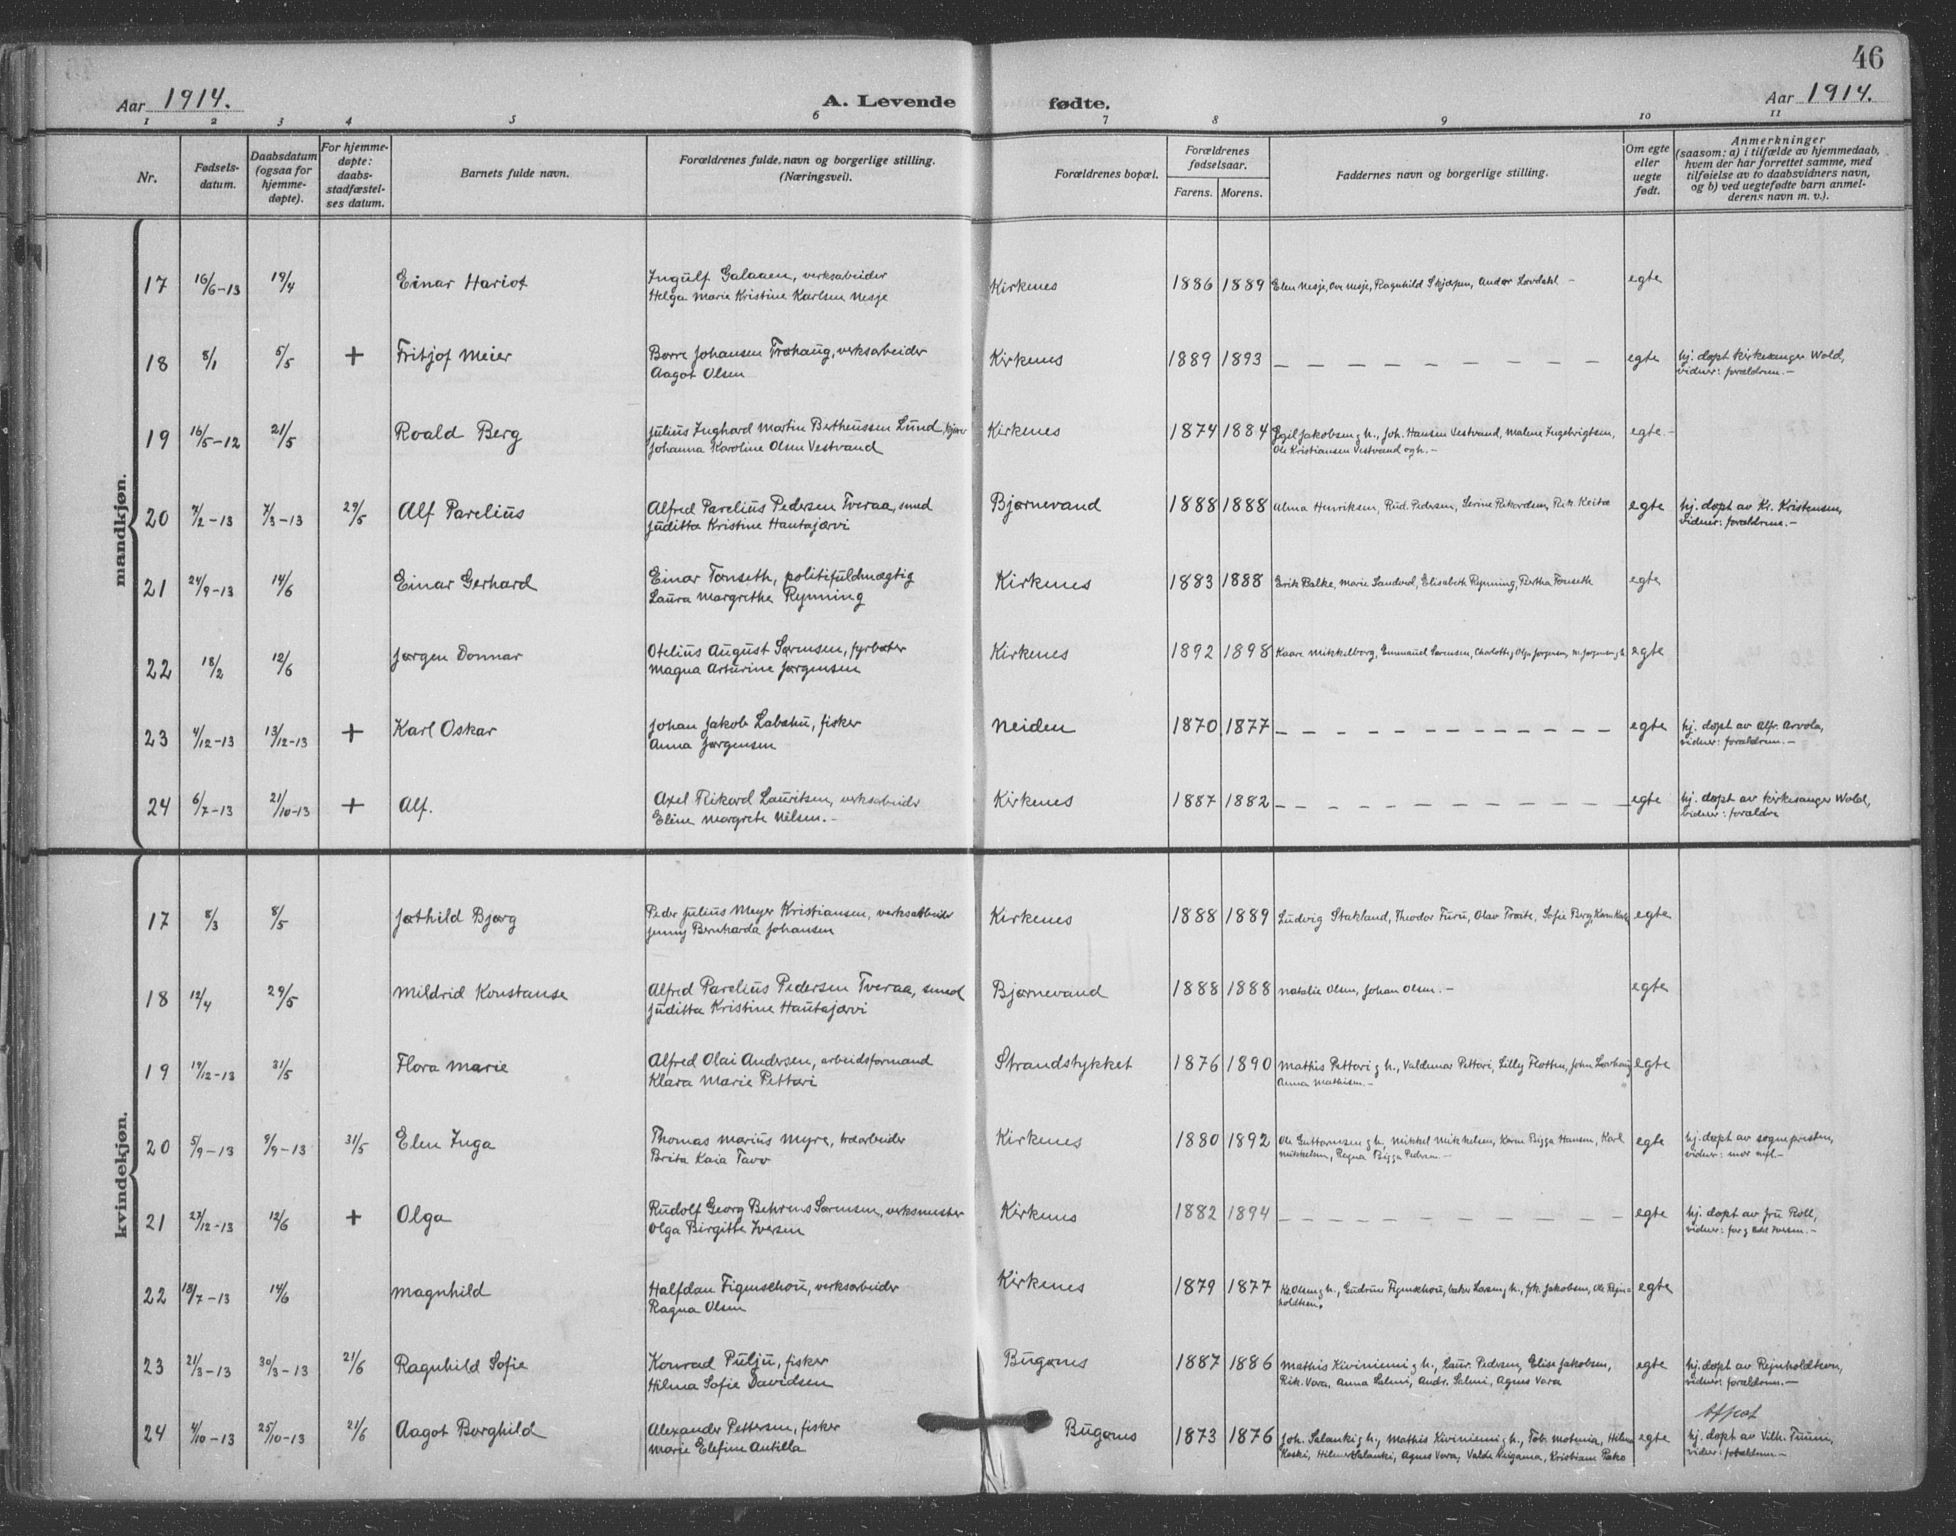 46
Aar 1914. A. Levende fødte. Aar 1914.
1 2 3 4 5 6 7 8 9 10 11
Nr. Fødselsdatum. Daabsdatum (ogsaa for hjemmedøpte). For hjemmedøpte: daabsstadfæstelses datum. Barnets fulde navn. Forældrenes fulde navn og borgerlige stilling. (Næringsvei). Forældrenes bopæl. Forældrenes fødselsaar. Farens. Morens. Faddernes navn og borgerlige stilling. Om egte eller uegte født. Anmerkninger (saasom: a) i tilfælde av hjemmedaab, hvem der har forrettet samme, med tilføielse av to daabsvidners navn, og b) ved uegtefødte barn anmelderens navn m. v.).
mandkjøn.
17 16/6-13 19/4 Einar Hariot Ingulf Galaaen, verksarbeider Kirkenes 1886 1889 Elen Nesje, Ove Nesje, Ragnhild Skjæpen, Andor Løvdahl - egte
Helga Marie Kristine Karlsen Nesje
18 8/1 5/5 + Fritjof Meier Borre Johansen Trøhaug, verksarbeider Kirkenes 1889 1893 — — — egte hj. døpt kirkesanger Wold,
Aagot Olsen vidner: forældrene.-
19 16/5-12 21/5 Roald Berg Julius Inghard Martin Bertheussen Lund, Kirkenes 1874 1884 Egil Jakobsen g h., Joh. Hansen Vestvand, Malene Ingebrigtsen, egte.-
Johanna Karoline Olsen Vestvand Ole Kristiansen Vestvand og h.-
20 7/2-13 7/3-13 29/5 Alf Parelius Alfred Parelius Pedersen Tveraa, smed Bjørnevand 1888 1888 Alma Henriksen, Rud. Pedersen, Serine Rikardsen, Rik. egte hj. døpt av Kr. Kristensen,
Juditta Kristine Hautajærvi vidner: forældrene.-
21 24/9-13 14/6 Einar Gerhard Einar Tønseth, politifuldmægtig Kirkenes 1883 1888 Erik Balke, Marie Sandved, Elisabeth Rynning, Bertha Tønseth egte
Laura Margrethe Rynning
22 18/2 12/6 Jørgen Donnar Otelius August Sørensen, fyrbøter Kirkenes 1892 1898 Kaare Mikkelborg, Emmanuel Sørensen, Charlotte g Olga Jørgensen, M. Jørgensen g h. egte
Magna Arturine Jørgensen
23 4/12-13 13/12-13 + Karl Oskar Johan Jakob Labahu, fisker Neiden 1870 1877 — — — egte hj. døpt av Alfr. Arvola,
Anna Jørgensen vidner: forældrene.-
24 6/7-13 21/10-13 + Alf. Axel Rikard Lauritsen, verksarbeider Kirkenes 1887 1882 — — — egte hj. døpt av kirkesanger Wold,
Eline Margrete Nilsen.- vidner: forældre
kvindekjøn.
17 8/3 8/5 Jøthild Bjørg Peder Julius Meyer Kristiansen, verksarbeider Kirkenes 1888 1889 Ludvig Stakland, Theodor Furu, Olav Troite, Sofie Berg, egte
Jenny Bernharda Johansen
18 12/4 29/5 Mildrid Konstanse Alfred Parelius Pedersen Tveraa, smed Bjørnevand 1888 1888 Natalie Olsen, Johan Olsen.- egte
Juditta Kristine Hautajærvi
19 19/12-13 31/5 Flora Marie Alfred Olai Andersen, arbeidsformand Strandstykket 1876 1890 Mathis Pettari g h., Valdemar Pettari, Lilly Flotten, John egte
Klara Marie Pettari Anna Mathisen.-
20 5/9-13 9/9-13 31/5 Elen Inga Thomas Marius Myre, træarbeider Kirkenes 1880 1892 Ole Guttormsen g h., Mikkel Mikkelsen, Karen Bigga Hansen, Karl egte hj. døpt av sognepresten,
Brita Kaia Tavo Mikkelsen, Ragna Bigga Pedersen.- vidner: mor
21 27/12-13 12/6 + Olga Rudolf Georg Behrens Sørensen, verksmester Kirkenes 1882 1894 — — — egte hj. døpt av fru Roll,
Olga Birgitte Iversen vidner: far g Iversen.-
22 18/7-13 14/6 Magnhild Halfdan Figenschou, verksarbeider Kirkenes 1879 1877 Olsen g h., Gudrun Figenschou, baker Larsen g h., frk. Jakobsen, Ole Rejn- egte
Ragna Olsen holdtsen.
23 21/3-13 30/3-13 21/6 Ragnhild Sofie Konrad Pulju, fisker Bugønes 1887 1886 Mathis Kiviniemi g h., Laur. Pedersen, Elise Jakobsen, egte hj. døpt av Rejnholdtsen,
Hilma Sofie Davidsen Rik. Vara, Anna Salmi, Andr. Salmi, Agnes Vara vidner: forældrene.-
24 4/10-13 25/10-13 21/6 Aagot Borghild Alexander Pettersen, fisker Bugønes 1873 1876 Joh. Salanki g h., Mathis Kiviniemi g h., Tob. Motenia, Hilma egte hj. døpt av Vilh. Tuum,
Marie Elefine Antilla Koski, Hilmer Salanki, Agnes Vara, Valde Keigama, Kristiane Pako vidner: forældrene -